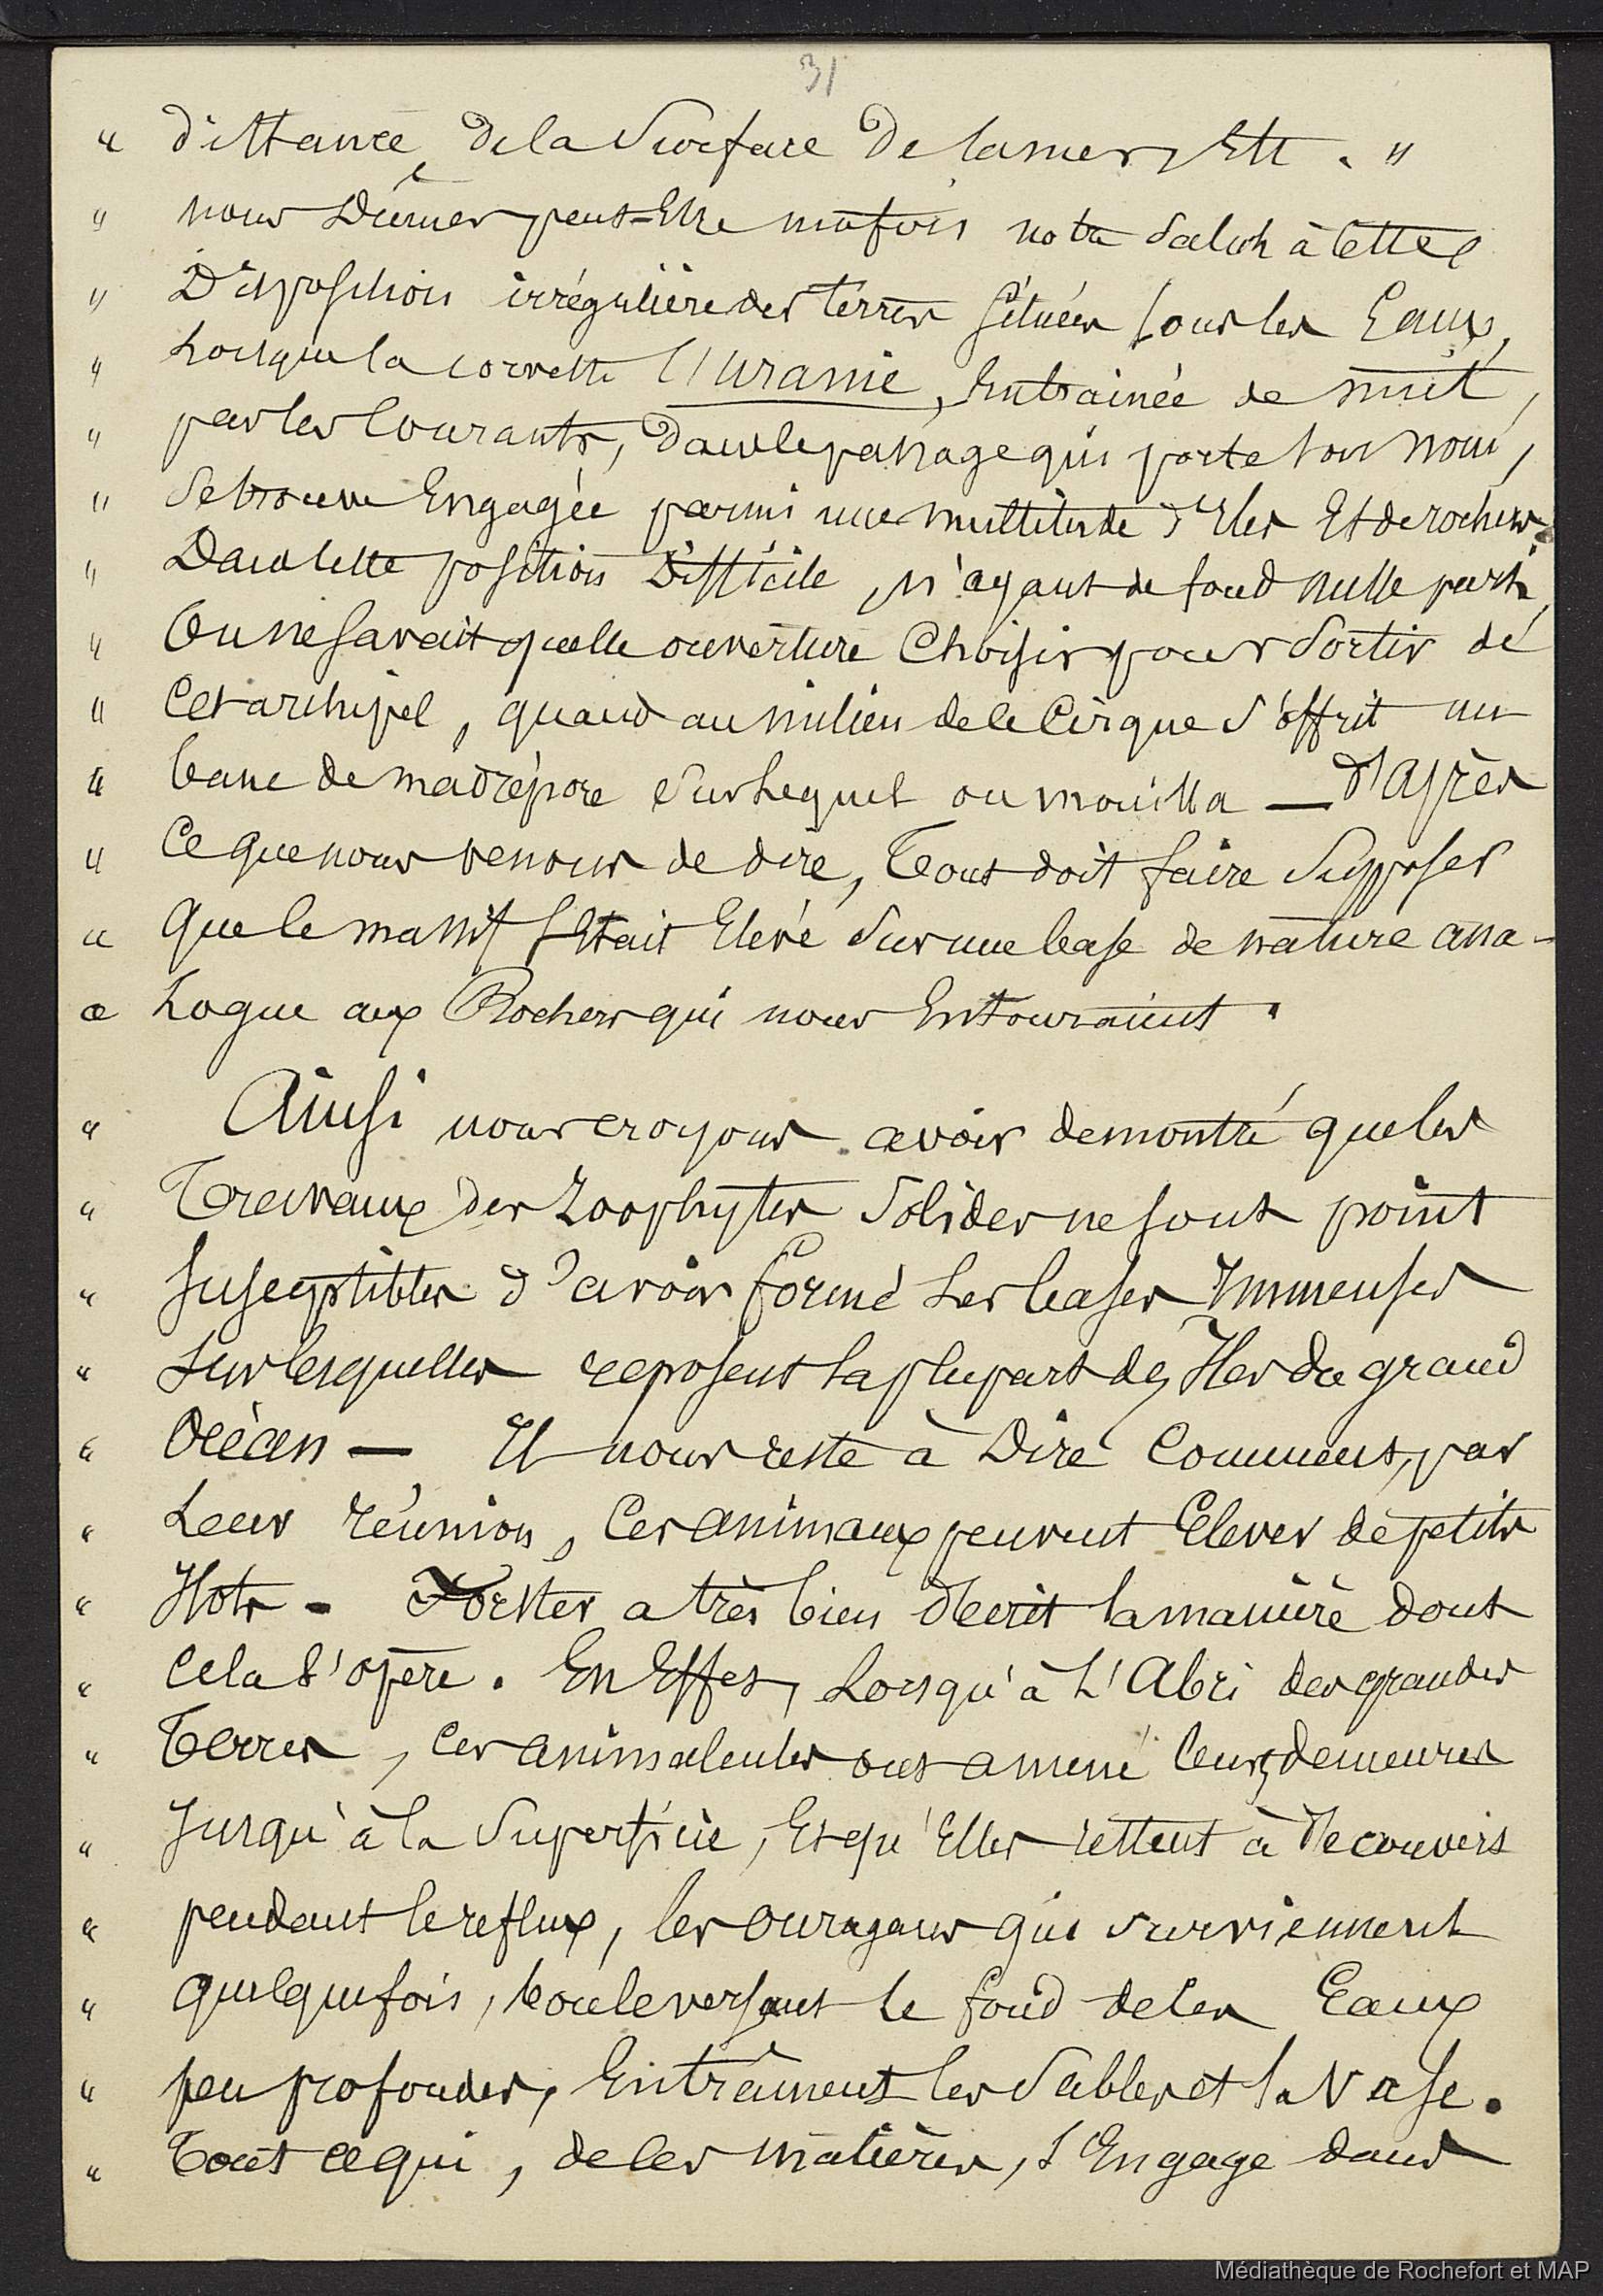 31
" distance, de la Surface De la mer, Ett. "
" nous Dûmes peut-Etre une fois notre salut à cette
" Disposition irrégulière des terres situées sous les Eaux,
" Lorsque la corvette l'uranie, Entrainée de nuit,
" par les Courants, Dans le passage qui porte son nom,
" Se trouva Engagée parmi une multitude d'Iles Et de rochers.
" Dans cette position Difficile, n'ayant de fond nulle part,
" On ne savait quelle ouverture Choisir pour Sortir de
" Cet archipel, quand au milieu de ce Cirque s'offrit un
" banc de madrépore Sur Lequel on mouilla — D'Après
" Ce que nous venons de dire, Tout doit faire Supposer
" Que le massif s'Etait Elevé Sur une base de nature ana-
" Logue aux Rochers qui nous Entouraient.
" Ainsi nous croyons avoir demontré que les
" Travaux des Zoophytes Solides ne sont point
" susceptibles d'avoir formé Les bases Immenses
" sur lesquelles reposent la plupart des Iles du grand
" Océan — Il nous reste à Dire Comment, par
" Leur réunion, Ces animaux peuvent Elever de petits
" Ilots - Forster a très bien décrit la manière dont
" Cela s'opère. En Effet, Lorsqu'à L'Abri des grandes
" Terres, Ces animalcules ont amené leurs demeures
" Jusqu'à la Superficie, Et qu'Elles restent à Découvert
" pendant le reflux, les ouragans qui surviennent
" Quelquefois, bouleversant Le fond de ces Eaux
" peu profondes, Entraînent les Sables et la Vase.
" Tout ce qui, de ces matières, s'Engage dans
Médiathèque de Rochefort et MAP